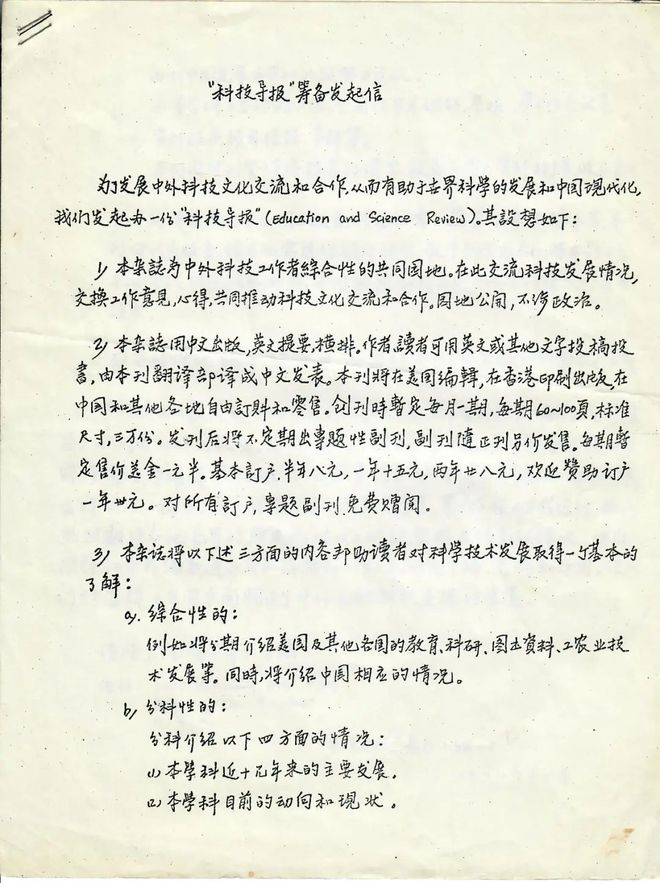 "科技导报"筹备发起信
为了发展中外科技文化交流和合作,从而有助于世界科學的发展和中国现代化,
我们发起办一份"科技导报"(Education and Science Review)。其設想如下:
1) 本杂誌为中外科技工作者綜合性的共同园地。在此交流科技发展情况,
交换工作意見,心得,共同推动科技文化交流和合作。园地公開,不涉政治。
2) 本杂誌用中文出版,英文提要,横排。作者,讀者可用英文或其他文字投稿投
書,由本刊翻譯部译成中文发表。本刊將在美国编輯,在香港印刷出版,在
中国和其他各地自由訂購和零售。创刊時暫定每月一期,每期60~100頁,标准
尺寸,三万份。发刊后將不定期出專題性副刊,副刊隨正刊另价发售。每期暫
定售价美金一元半。基本訂户,半年八元,一年十五元,两年廿八元,欢迎贊助订户
一年卅元。对所有訂户,專題副刊免費赠阅。
3) 本杂誌將以下述三方面的内容邦助读者对科学技术发展取得一个基本的
了解:
a) 綜合性的:
例如將分期介紹美国及其他各国的教育、科研、图书資料、工农业技
术发展等。同時,將介绍中国相应的情况。
b) 分科性的:
分科介绍以下四方面的情况:
(1) 本學科近十几年来的主要发展。
(2) 本學科目前的动向和現状。